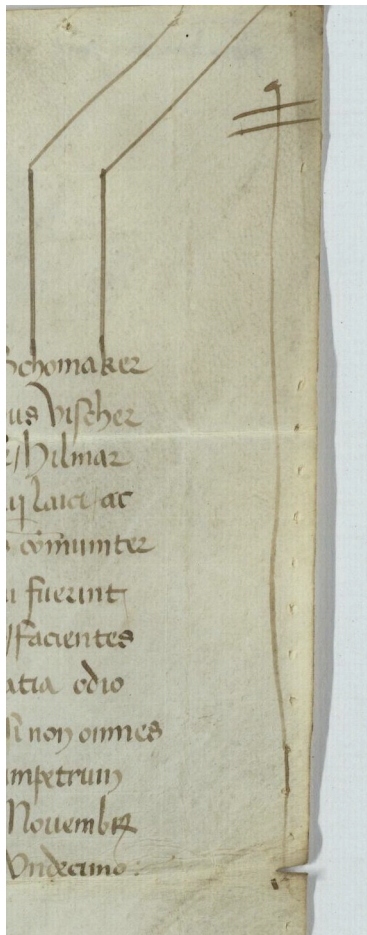 Schomaker
us Vischer
Hilmar
laici ac
com̄uniter
fuerint
facientes
atia odio
non omnes
impetrum
Novembr
Vndecimo: